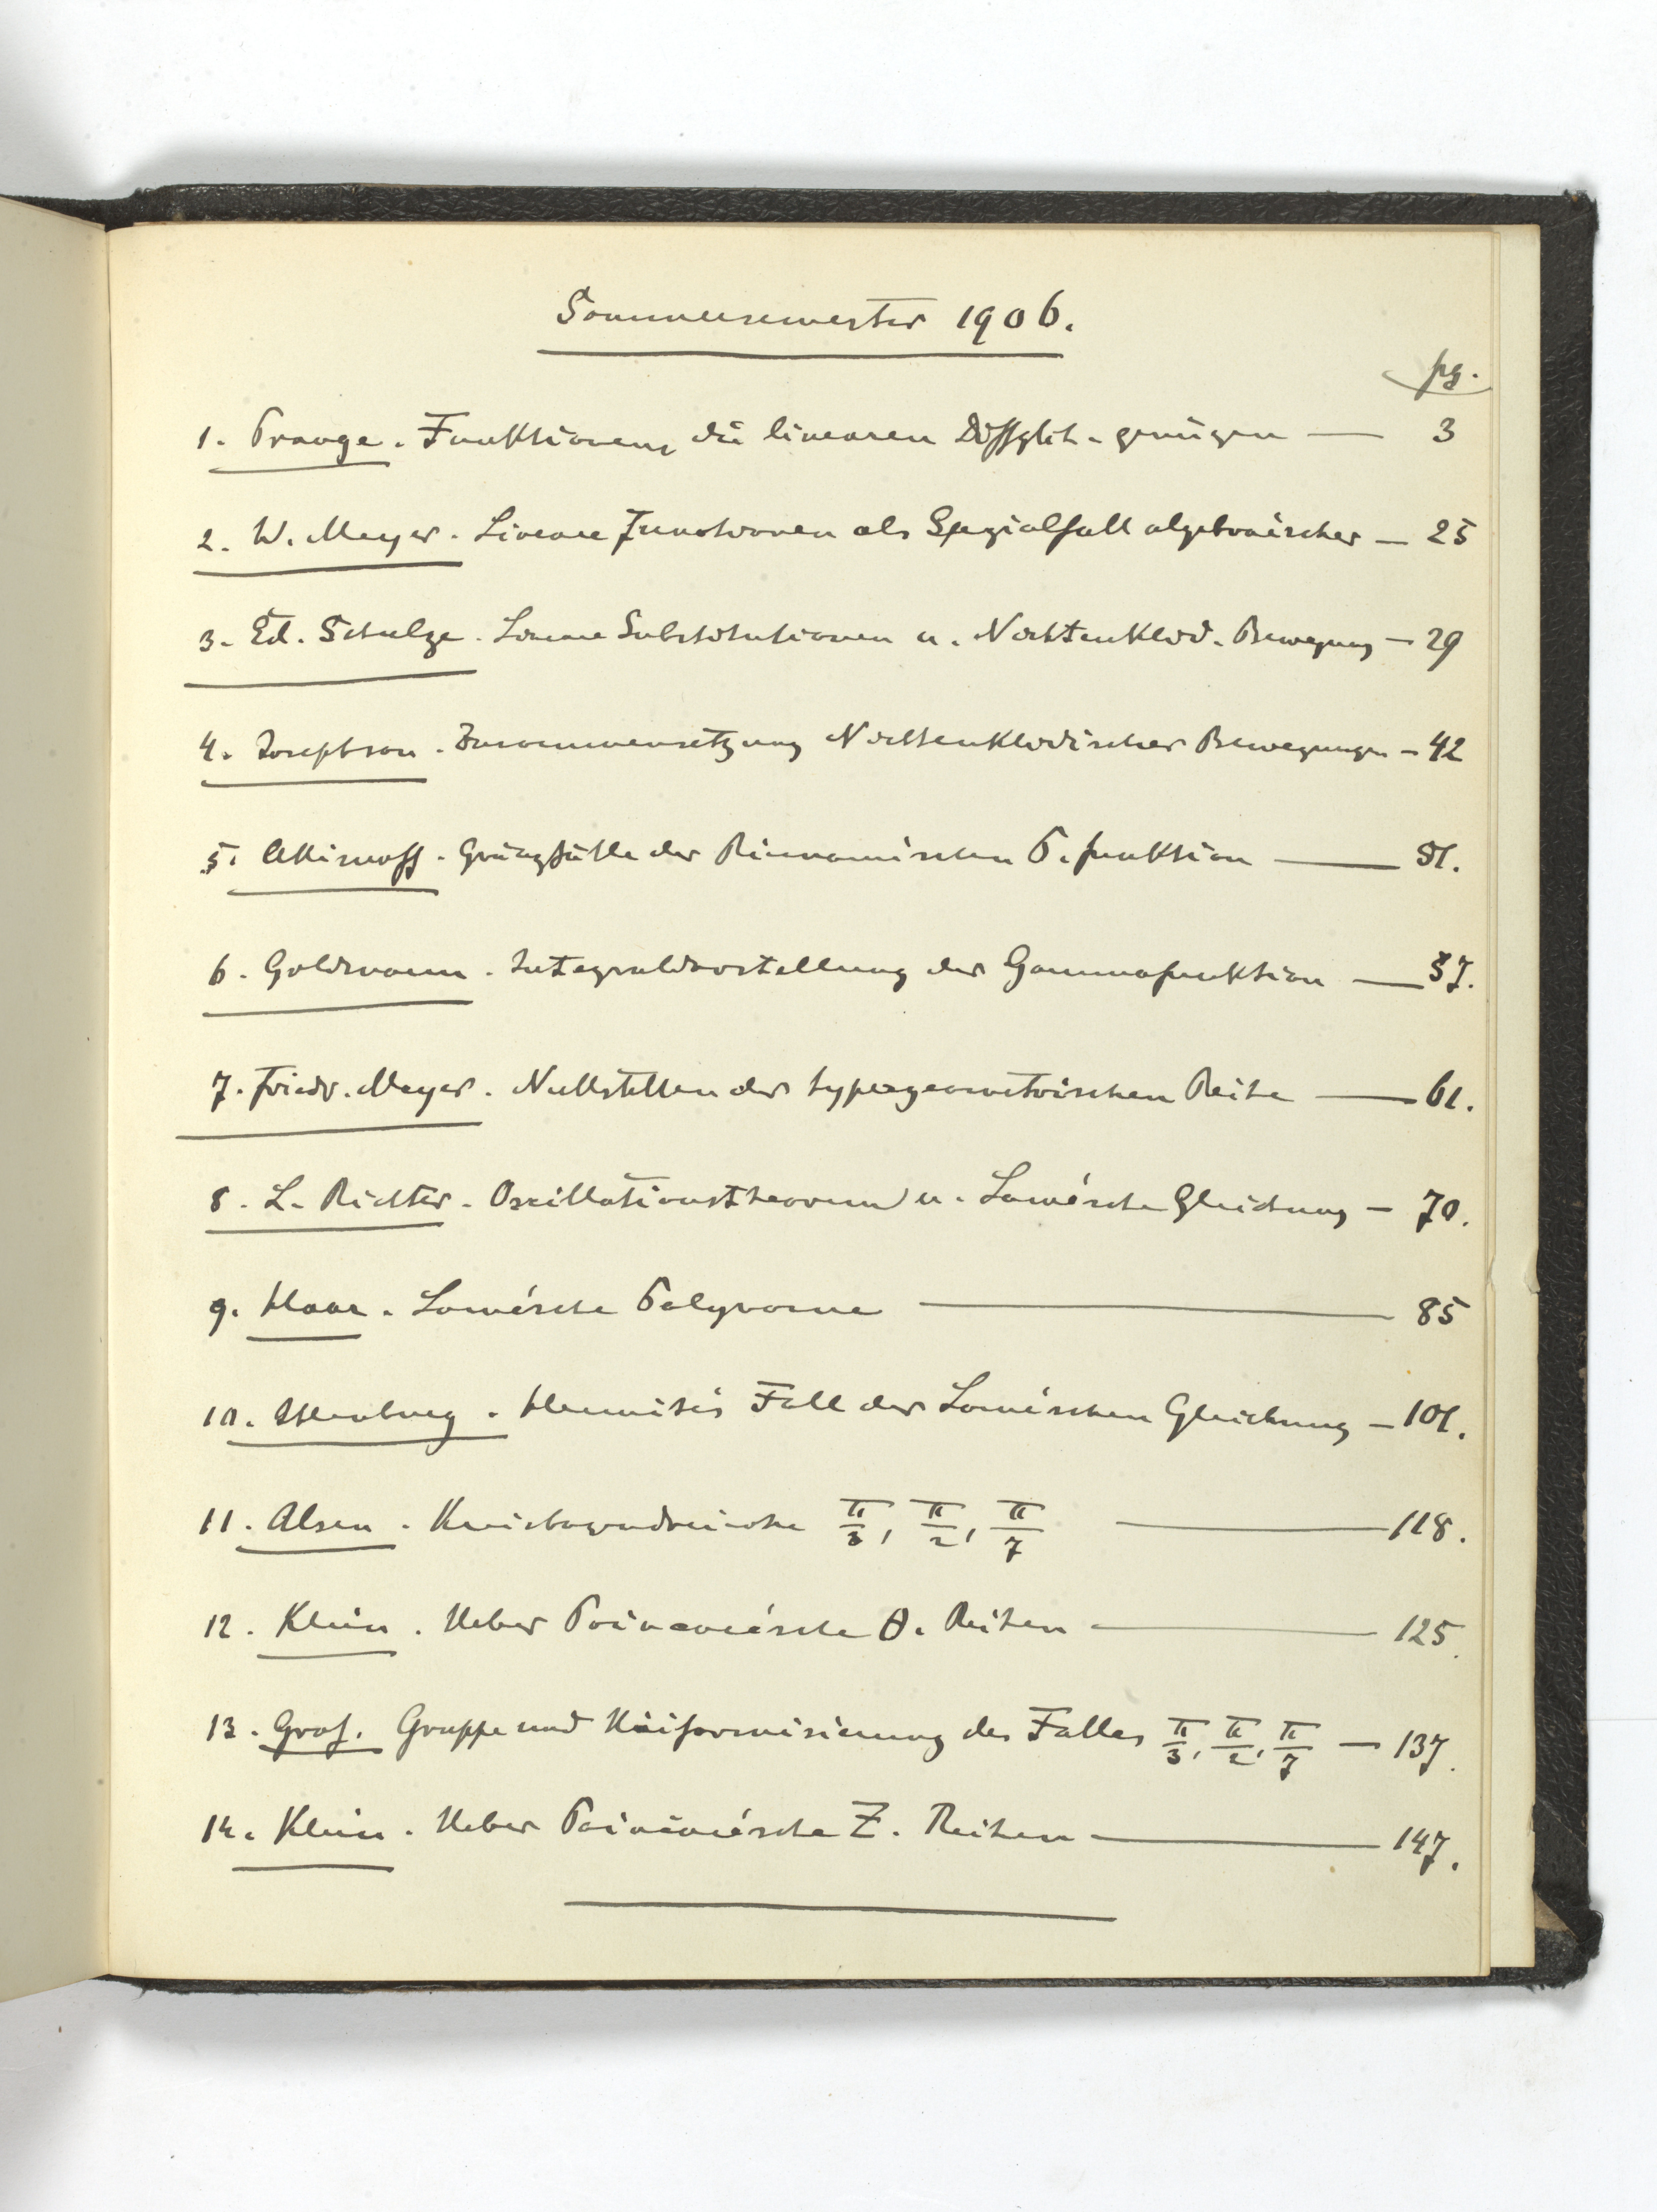 Sommersemester 1906.
pg.
1. Prange. Funktionen, die linearen Diffglch. genügen — 3
2. W. Meyer. Lineare Funktionen als Spezialfall algebraischer — 25
3. Ed. Schulze. Lineare Substitutionen u. Nichteuklid. Bewegung — 29
4. Josephson. Zusammensetzung Nichteuklidischer Bewegungen — 42
5. Akimoff. Grenzfälle der Riemannischen P. funktion — 51.
6. Goldmann. Integraldarstellung der Gammafunktion — 57.
7. Friedr. Meyer. Nullstellen der hypergeometrischen Reihe — 61.
8. L. Richter. Oscillationstheorem u. Lamésche Gleichung — 70.
9. Haar. Lamésche Polynome — 85
10. Hermites Fall der Laméschen Gleichung — 101.
11. Alsen. Kreisbogendreiecke π/3, π/2, π/7 — 118.
12. Klein. Ueber Poincarésche θ. Reihen — 125.
13. Graf. Gruppe und Uniformisierung des Falles π/3, π/2, π/7 — 137.
14. Klein. Ueber Poincarésche Z. Reihen — 147.